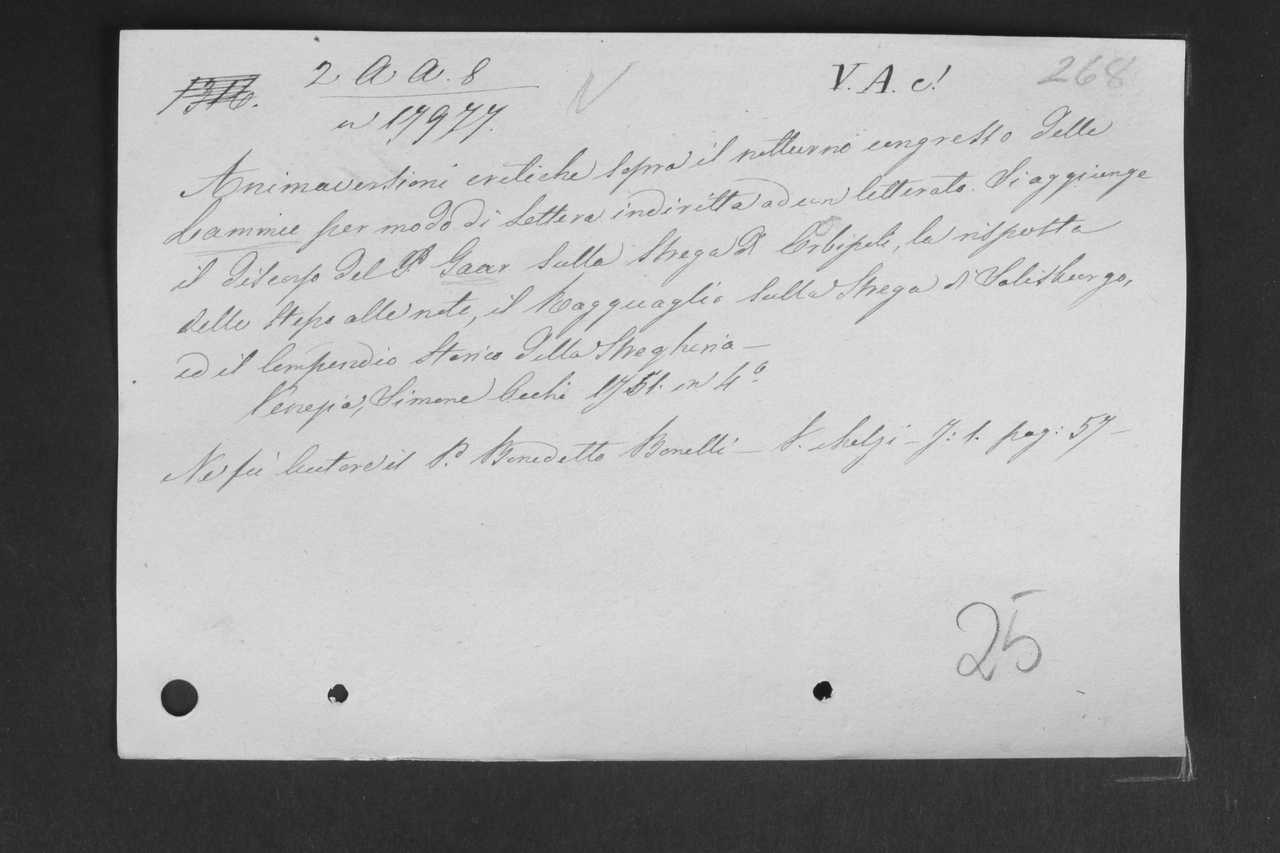 1316. 2 A A. 8 V V. A. c! 268
n 17977.
Animaversioni critiche sopra il notturno congresso delle
Lammie per modo di lettera indiritta ad un letterato. Si aggiunge
il discorso del P. Gaar sulla Strega d' Erbipoli, la risposta
dello stesso alle note, il Ragguaglio sulla Strega di Salisburgo,
ed il Compendio Storico della Stregheria —
Venezia, Simone Occhi 1751. in 4°.
Ne fù Autore il P. Benedetto Bonelli — V. Melzi — T: 1. pag: 57 —
25